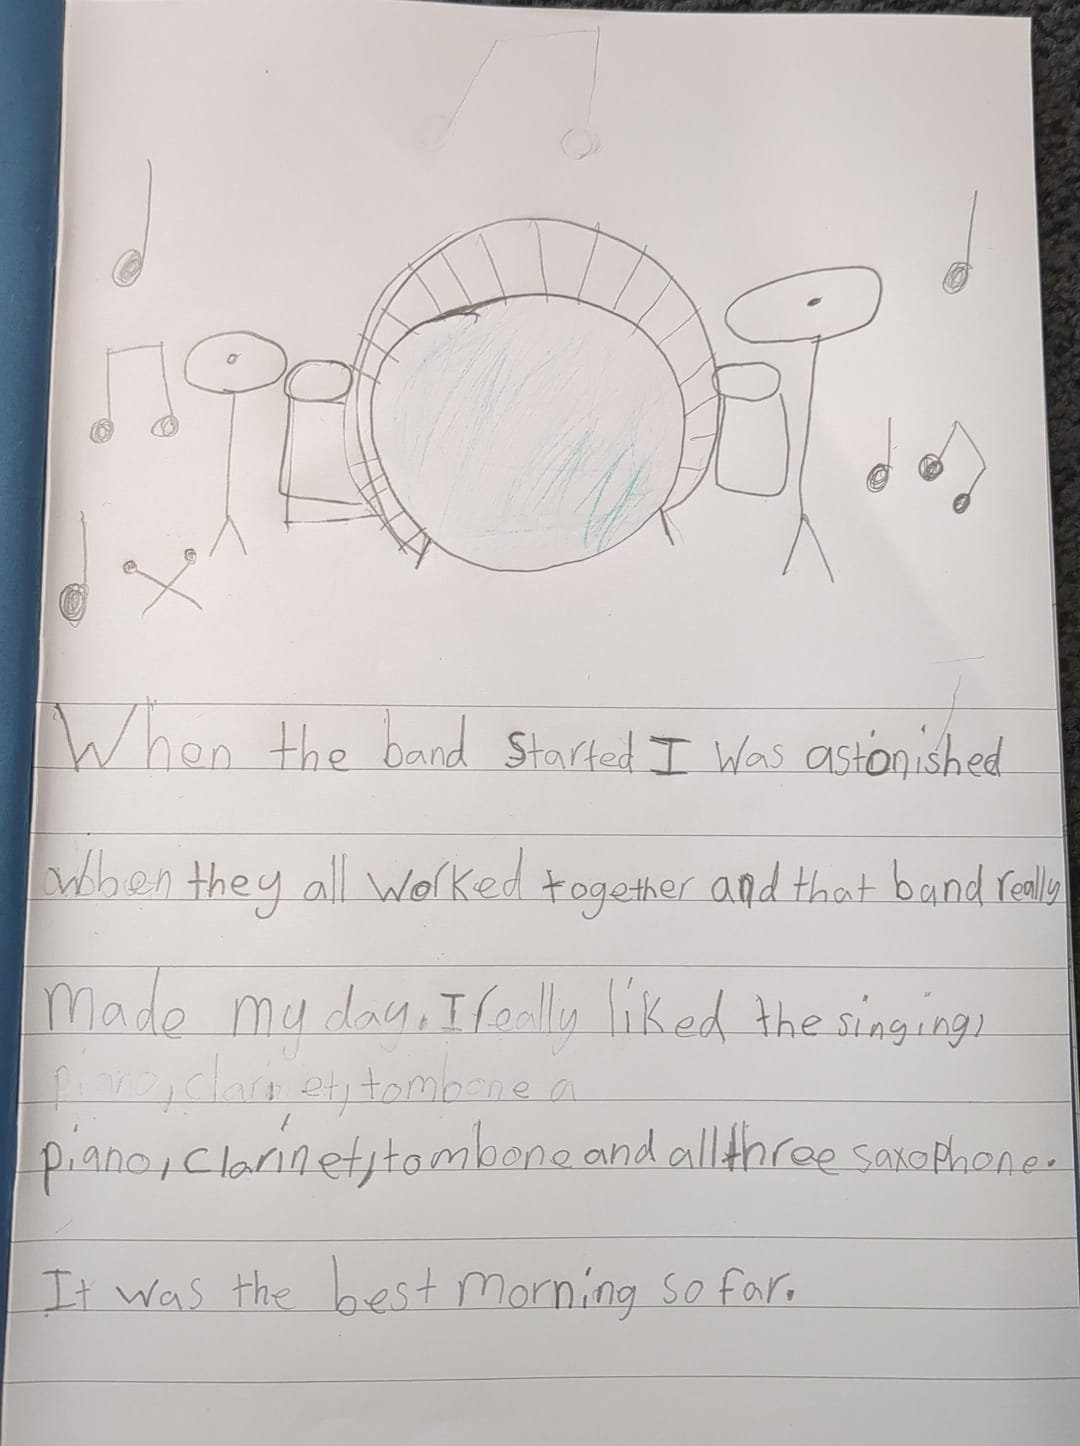 When the band started I was astonished
when they all worked together and that band really
made my day. I really liked the singing,
piano, clarinet, tombone a
piano, clarinet, tombone and all three saxophone.
It was the best morning so far.